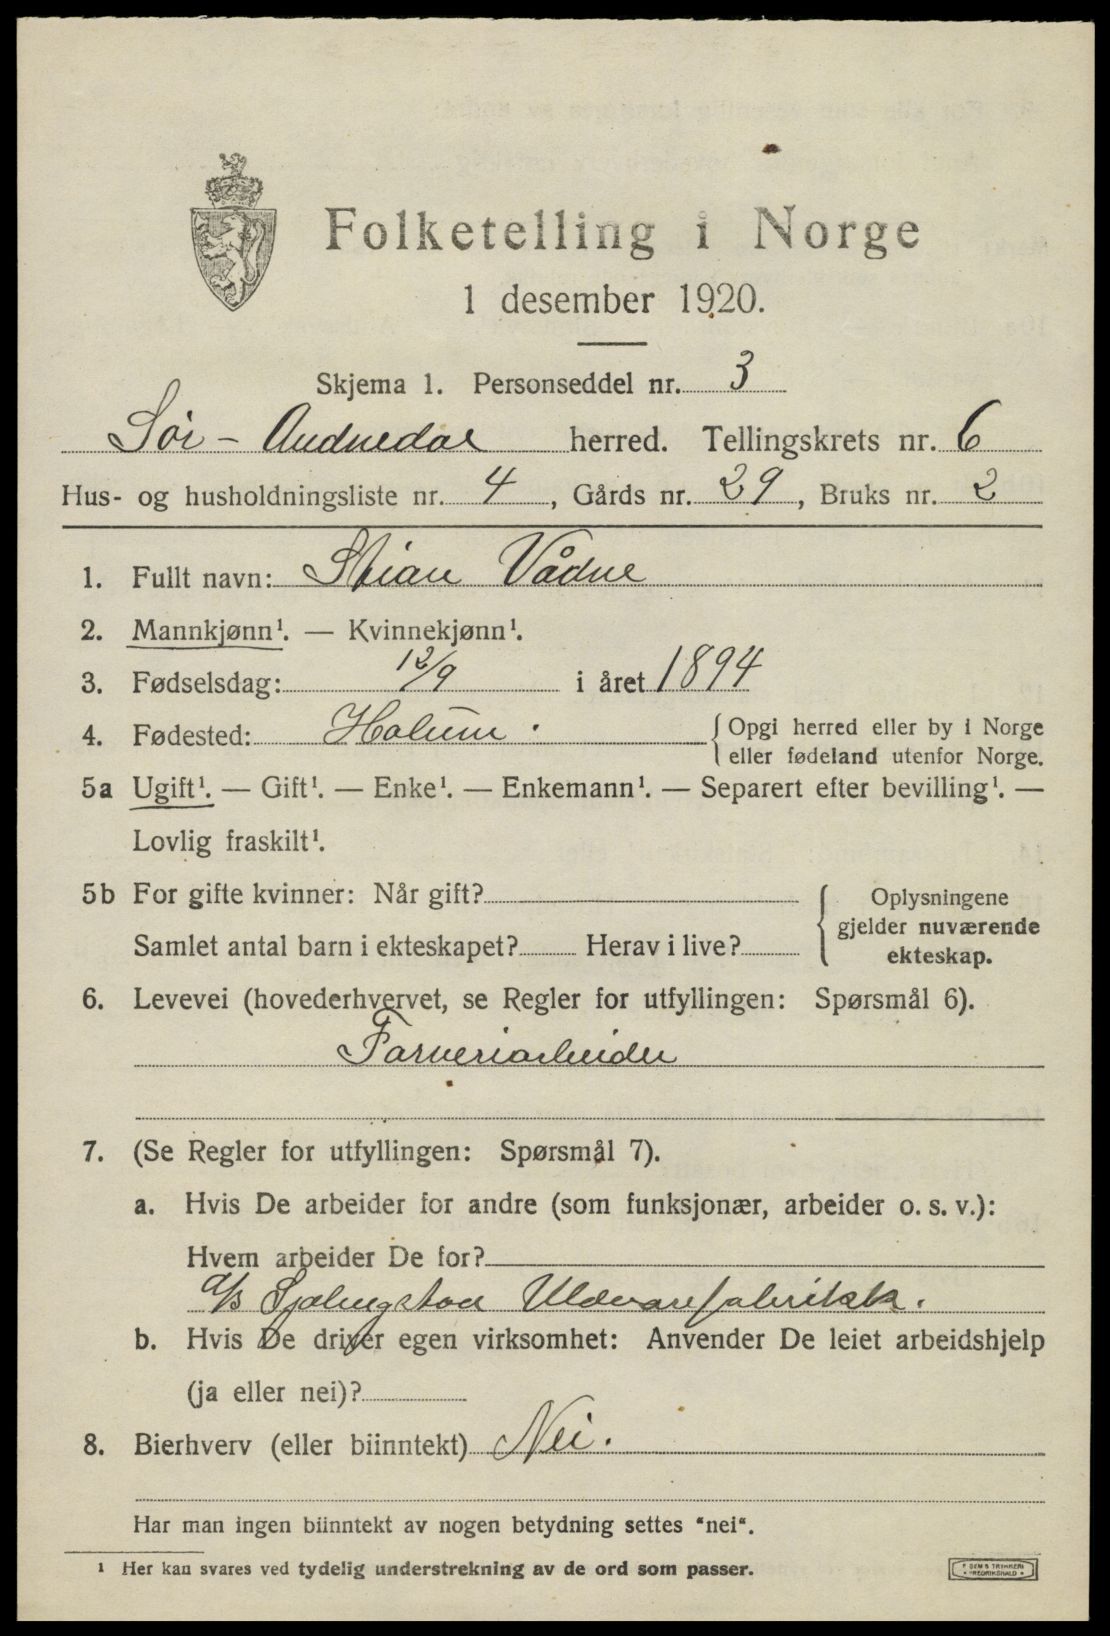 Folketelling i Norge
1 desember 1920.
Skjema 1. Personseddel nr. 3
Sør-Audnedal herred. Tellingskrets nr. 6
Hus- og husholdningsliste nr. 4, Gårds nr. 29, Bruks nr. 2
1. Fullt navn: Stian Vådne
2. Mannkjønn¹. — Kvinnekjønn¹.
3. Fødselsdag: 12/9 i året 1894
4. Fødested: Holum. { Opgi herred eller by i Norge
eller fødeland utenfor Norge.
5a Ugift¹. — Gift¹. — Enke¹. — Enkemann¹. — Separert efter bevilling¹. —
Lovlig fraskilt¹.
5b For gifte kvinner: Når gift? { Oplysningene
gjelder nuværende
Samlet antal barn i ekteskapet? Herav i live?
ekteskap.
6. Levevei (hovederhvervet, se Regler for utfyllingen: Spørsmål 6).
Farveriarbeider
7. (Se Regler for utfyllingen: Spørsmål 7).
a. Hvis De arbeider for andre (som funksjonær, arbeider o. s. v.):
Hvem arbeider De for?
a/s Sjølingstad Uldvarefabrikk.
b. Hvis De driver egen virksomhet: Anvender De leiet arbeidshjelp
(ja eller nei)?
8. Bierhverv (eller biinntekt) Nei.
Har man ingen biinntekt av nogen betydning settes "nei".
¹ Her kan svares ved tydelig understrekning av de ord som passer.